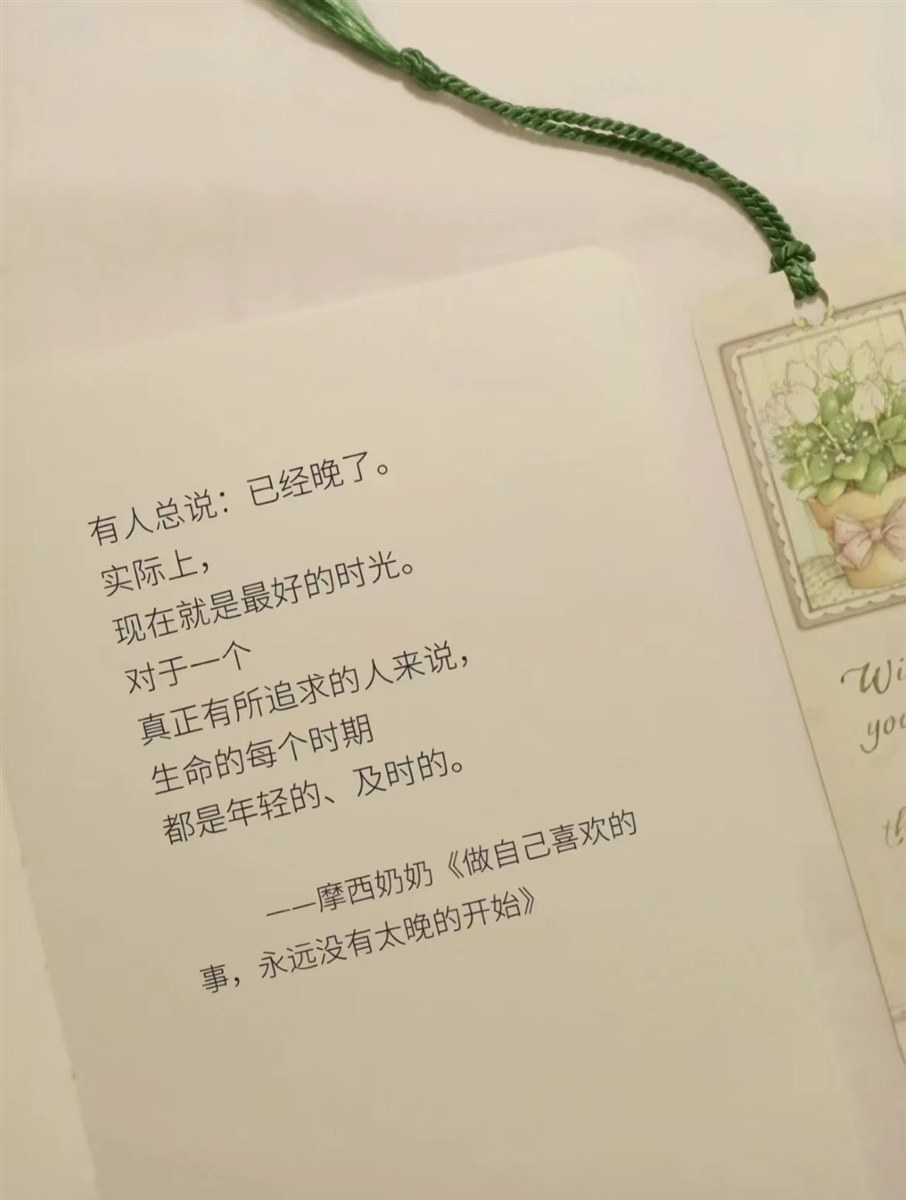 有人总说：已经晚了。
实际上，
现在就是最好的时光。
对于一个
真正有所追求的人来说，
生命的每个时期
都是年轻的、及时的。
——摩西奶奶《做自己喜欢的
事，永远没有太晚的开始》
you